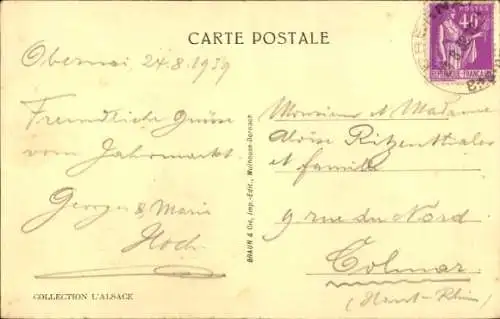 CARTE POSTALE
Obernai 24.8.1939
Freundliche Grüsse
vom Jahrmarkt
Georges & Marie
Hoch
COLLECTION L'ALSACE
BRAUN & Cie, Imp.-Edit., Mulhouse-Dornach
POSTES
40c
Monsieur et Madame
Aloise Ritzenthaler
et famille
9 rue du Nord
Colmar
(Haut-Rhin)